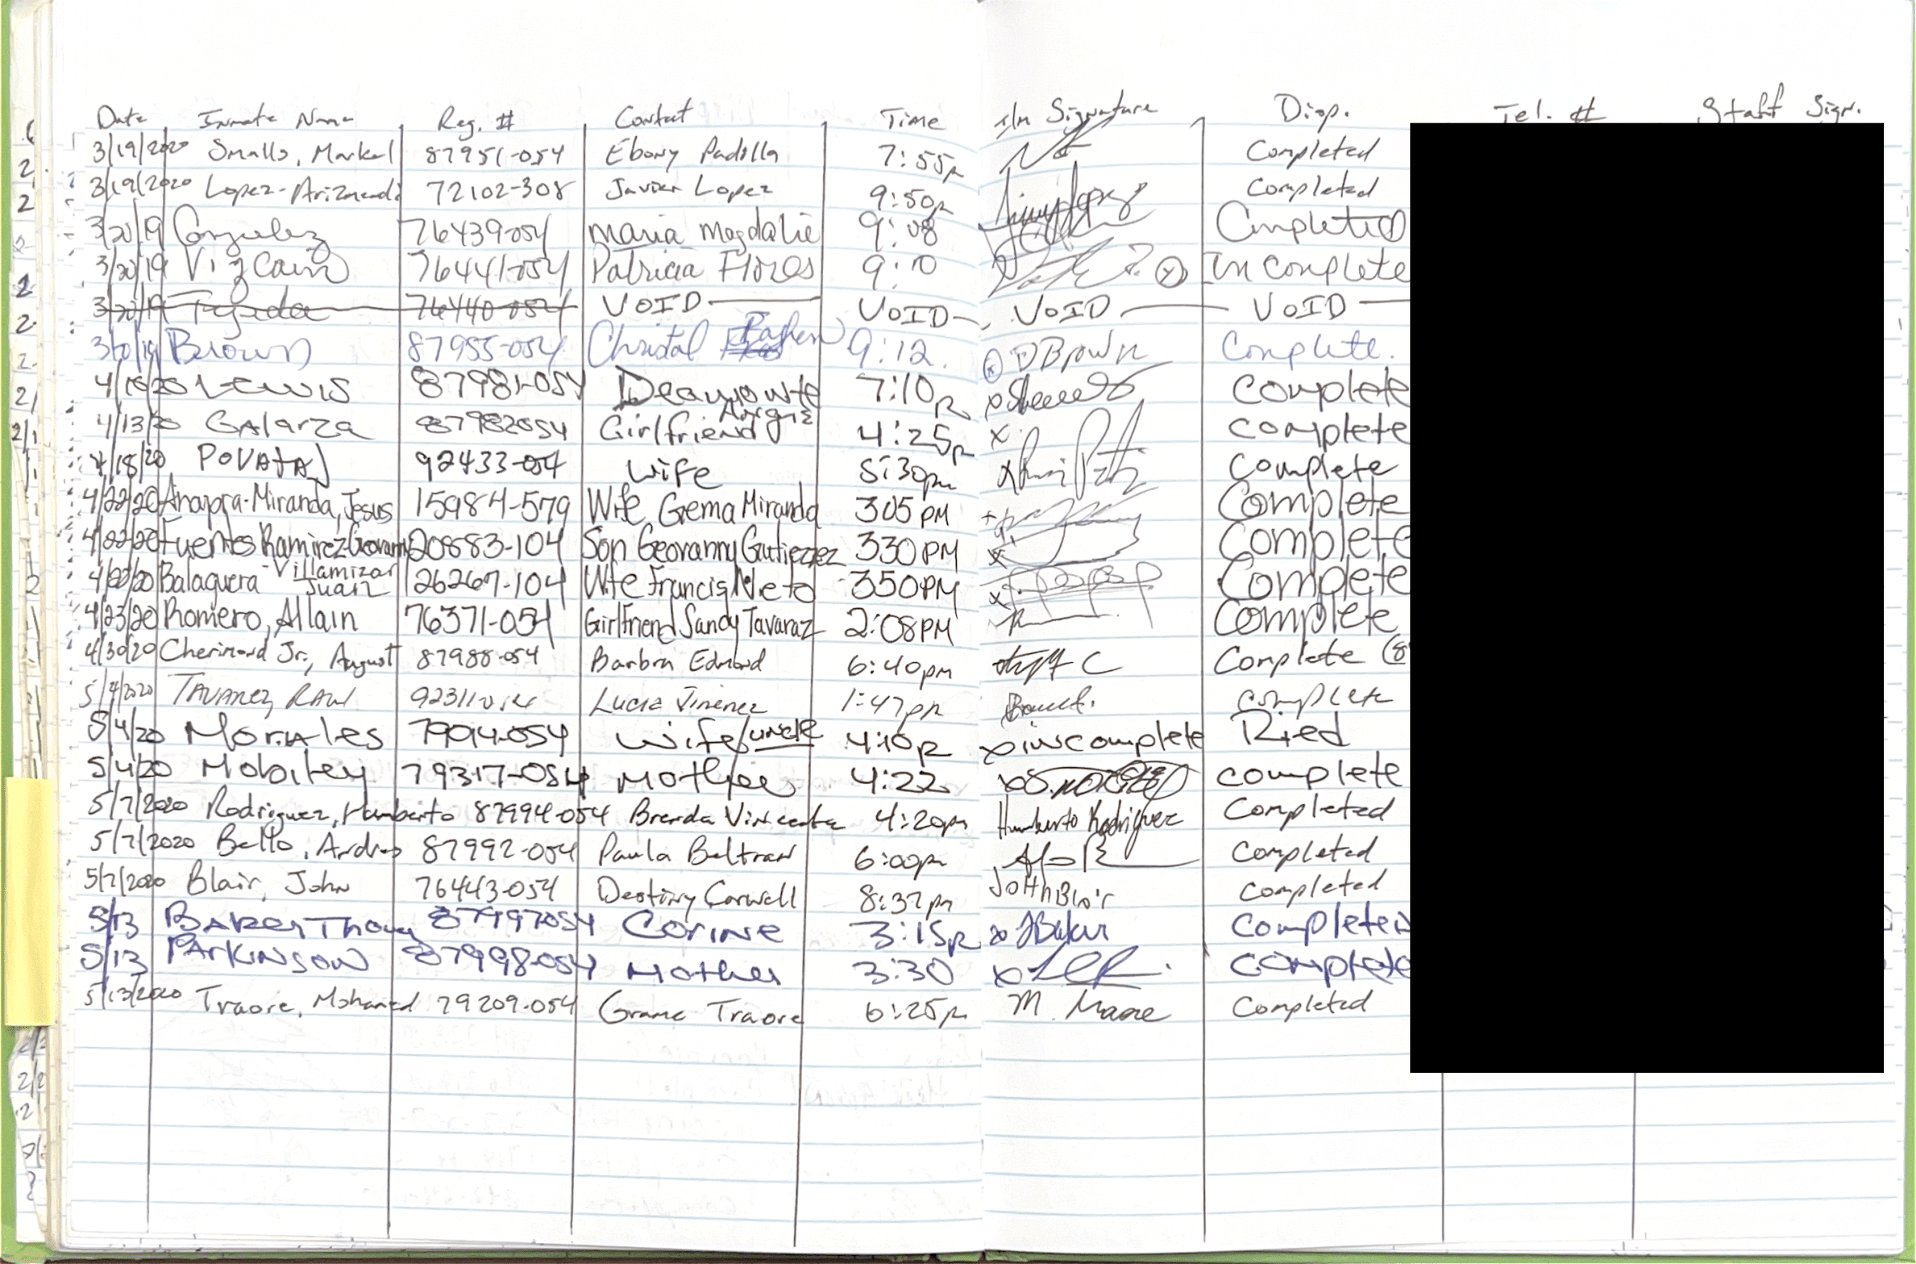 Date Inmate Name Reg. # Contact Time I/m Signature Disp. Tel. # Staff Sign.
3/19/2020 Smalls, Markel 87951-054 Ebony Padilla 7:55p Completed
3/19/2020 Lopez-Arizmendi 72102-308 Javier Lopez 9:50p Completed
3/20/19 Gonzalez 76439-054 Maria Magdalie 9:08 Completed
3/20/19 Vizcaino 76441-054 Patricia Flores 9:10 Incomplete
3/20/19 Tejada 76440-054 VOID VOID VOID VOID
3/20/19 Brown 87955-054 Christal 9:12 DBrown Complete.
4/ 20 Lewis 87981-054 7:10p x Complete
4/13/20 Galarza 87982054 Girlfriend Angie 4:25p x Complete
4/18/20 92433-054 wife 5:30pm x Complete
4/22/20 Anaya-Miranda, Jesus 15984-579 Wife Gema Miranda 305 PM + Complete
4/22/20 Fuentes Ramirez-Geovanny 20883-104 Son Geovanny Gutierrez 330 PM x Complete
4/20/20 Balaguera-Villamizar Juan 26267-104 Wife Francis Nieto 350PM x Complete
4/23/20 Romero, Allain 76371-054 Girlfriend Sandy Tavaraz 2:08PM Complete
4/30/20 Cherimond Jr., August 87988-054 Barbra Edmond 6:40pm C Complete (8
5/4/2020 Tavarez, Raul 92311054 Lucia Jimenez 1:47pm Complete
5/4/20 Morales 79914-054 wife/uncle 4:10p x incomplete Ried
5/4/20 Mobiley 79317-054 Mother 4:22 x complete
5/7/2020 Rodriguez, Humberto 87994-054 Brenda Vincenta 4:20pm Humberto Rodriguez Completed
5/7/2020 Bello, Andres 87992-054 Paula Beltran 6:00pm Completed
5/7/2020 Blair, John 76443-054 Destiny Carwell 8:37pm John Blair Completed
5/13 Baker Thomas 87997054 Corine 3:15p x JBaker Completed
5/13 Parkinson 87998-054 Mother 3:30 x Complete
5/13/2020 Traore, Mohamed 79209-054 Grame Traore 6:25p M. Completed